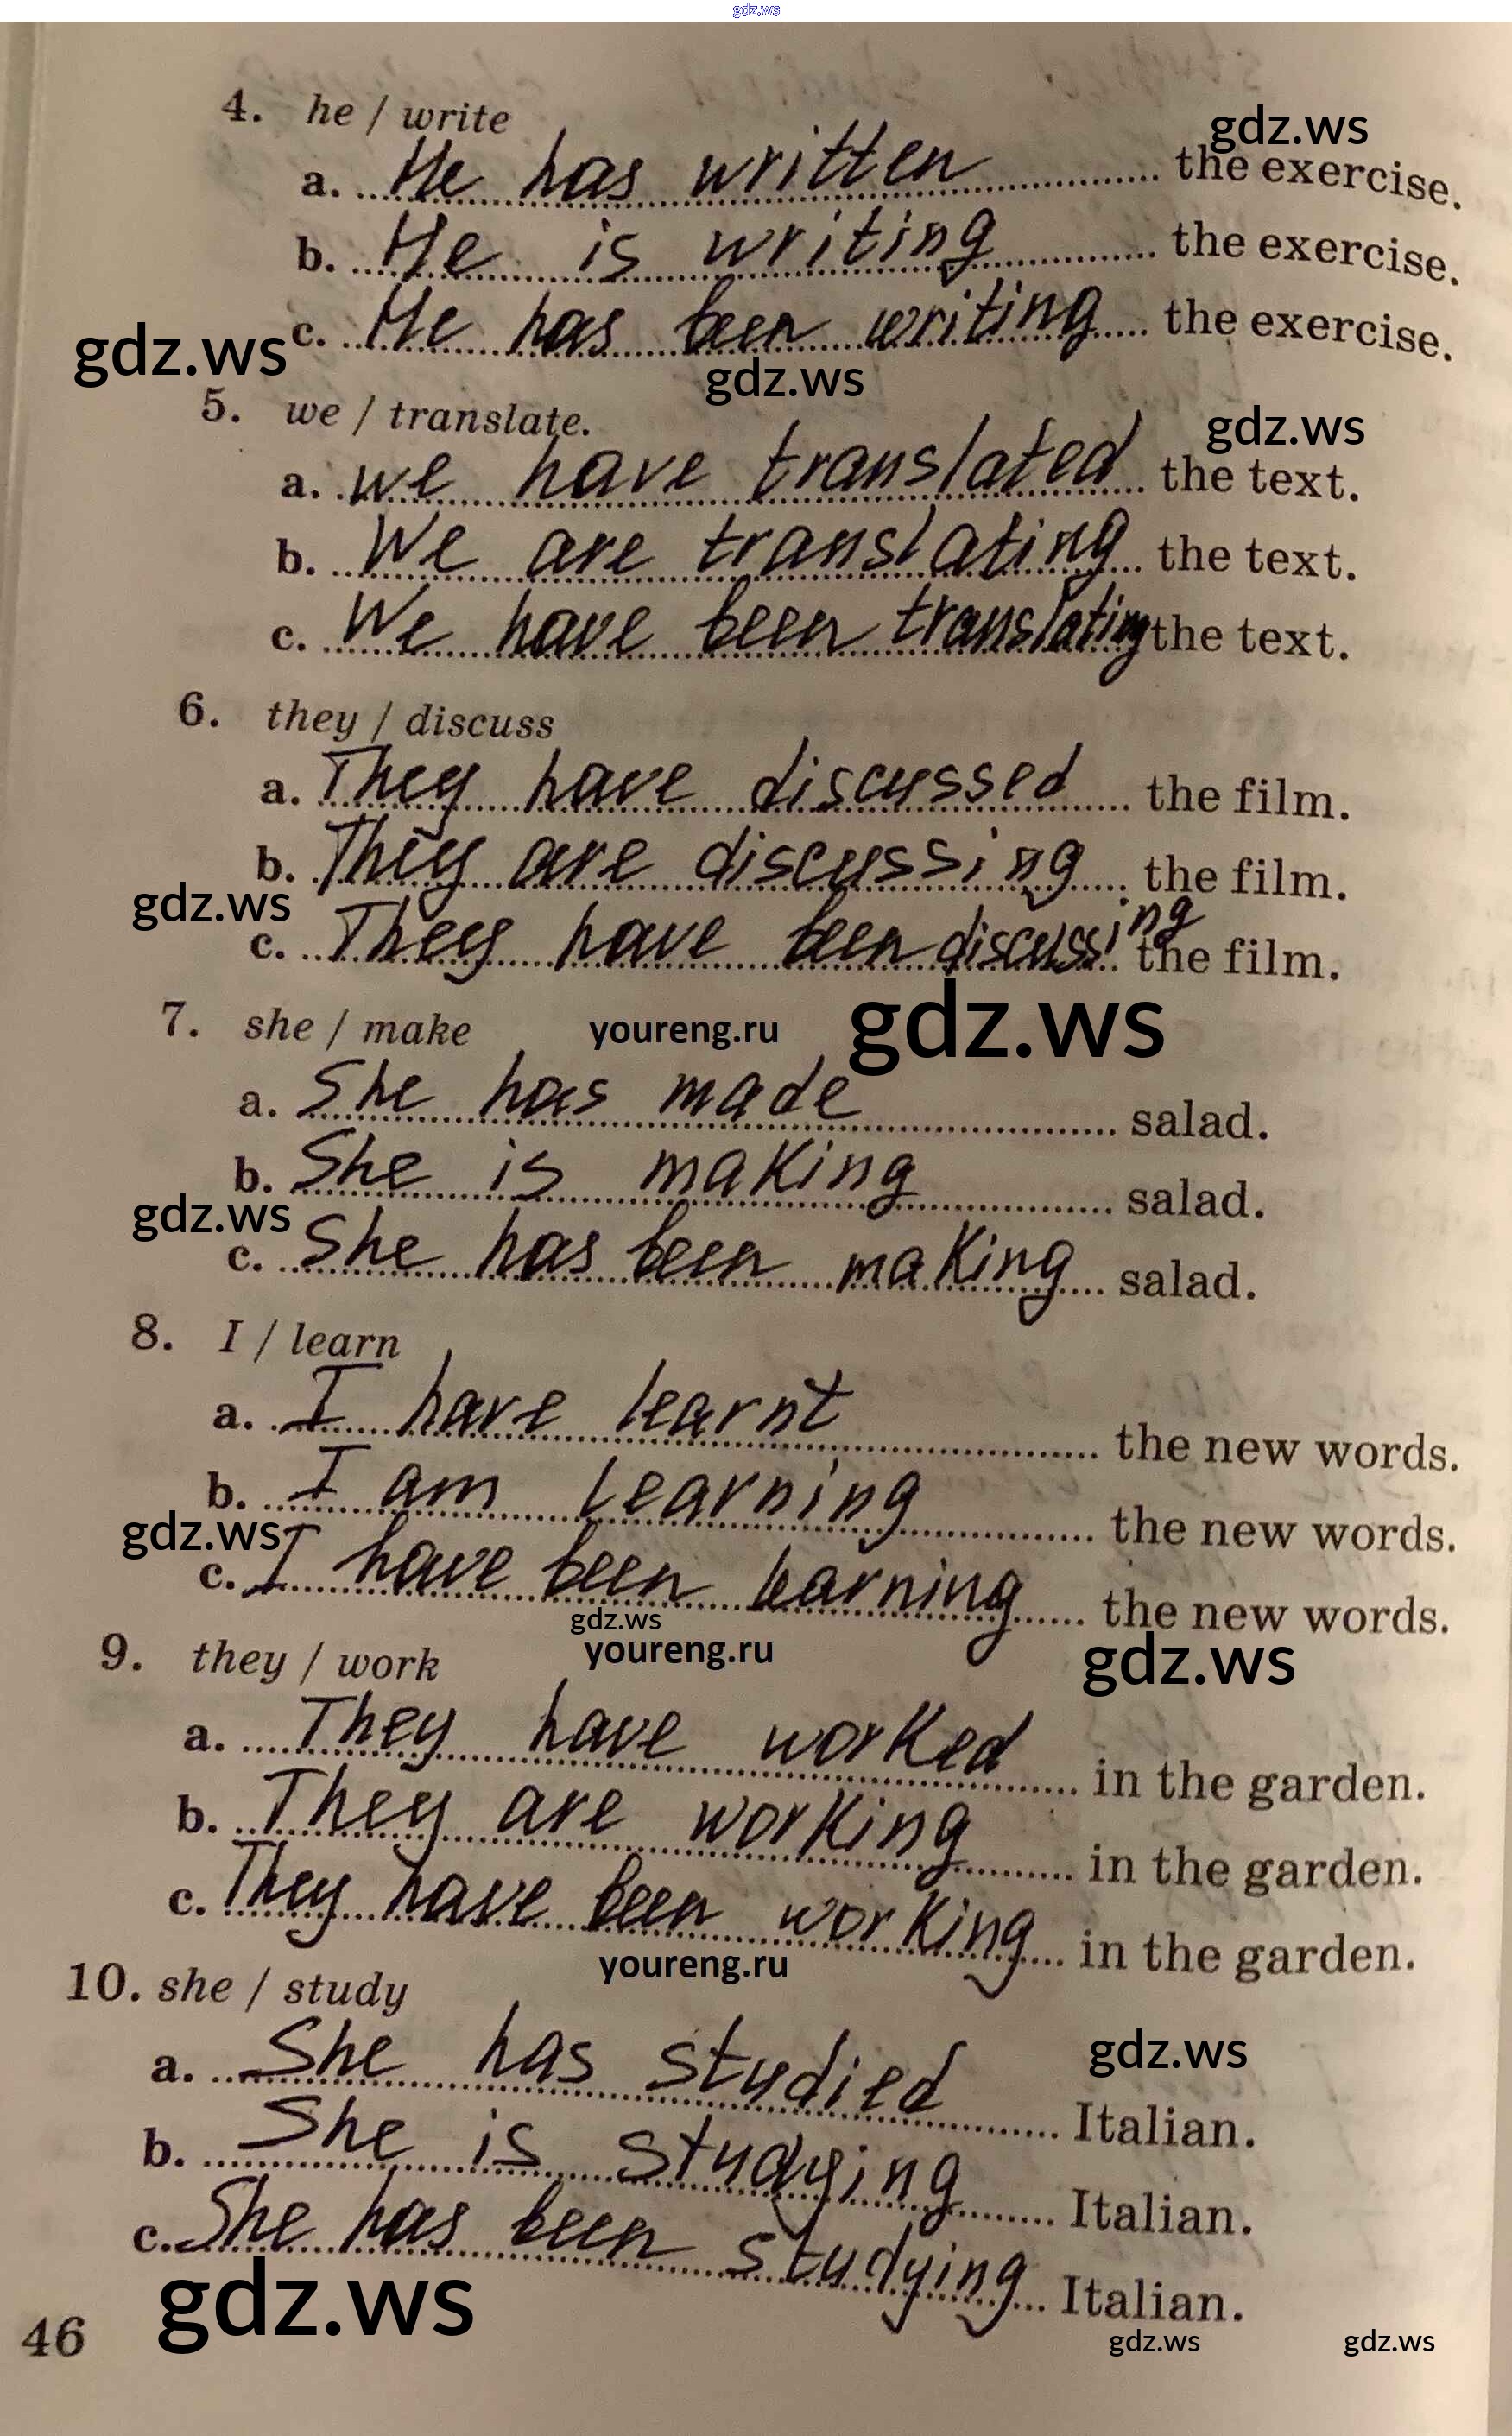 gdz.ws
4. he / write
gdz.ws
a. He has written the exercise.
b. He is writing the exercise.
c. He has been writing the exercise.
gdz.ws
gdz.ws
5. we / translate.
gdz.ws
a. we have translated the text.
b. We are translating the text.
c. We have been translating the text.
6. they / discuss
a. They have discussed the film.
b. They are discussing the film.
gdz.ws
c. They have been discussing the film.
7. she / make
youreng.ru
gdz.ws
a. She has made salad.
b. She is making salad.
gdz.ws
c. She has been making salad.
8. I / learn
a. I have learnt the new words.
b. I am learning the new words.
gdz.ws
c. I have been learning the new words.
gdz.ws
9. they / work
youreng.ru
gdz.ws
a. They have worked in the garden.
b. They are working in the garden.
c. They have been working in the garden.
youreng.ru
10. she / study
gdz.ws
a. She has studied Italian.
b. She is studying Italian.
c. She has been studying Italian.
gdz.ws
46
gdz.ws
gdz.ws